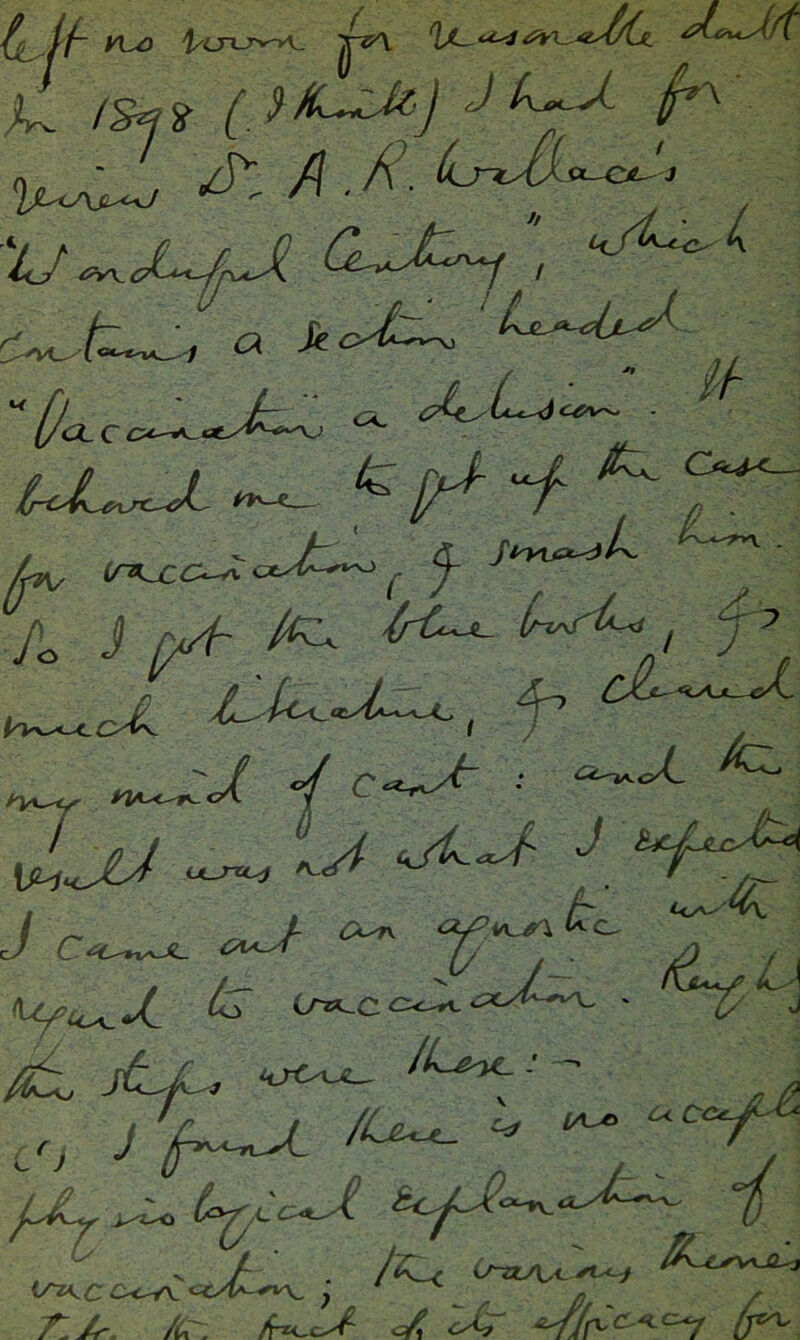 left no room for reasonable doubt
In 1898 (I think) I had for
review Dr. A. R. Wallace's
"Wonderful Century", which
contains a section headed
"Vaccination a delusion". It
behoved me to get up the case
for vaccination, & smash him.
So I got the blue books, &
much literature, & cleared
my mind of cant : and the
result was not what I expected
I came out an agnostic with
regard to vaccination. Roughly
the steps were these : -
(1) I found there is no accepte
physiological explanation of
vaccination ; the various theories
the fact of its efficacy for